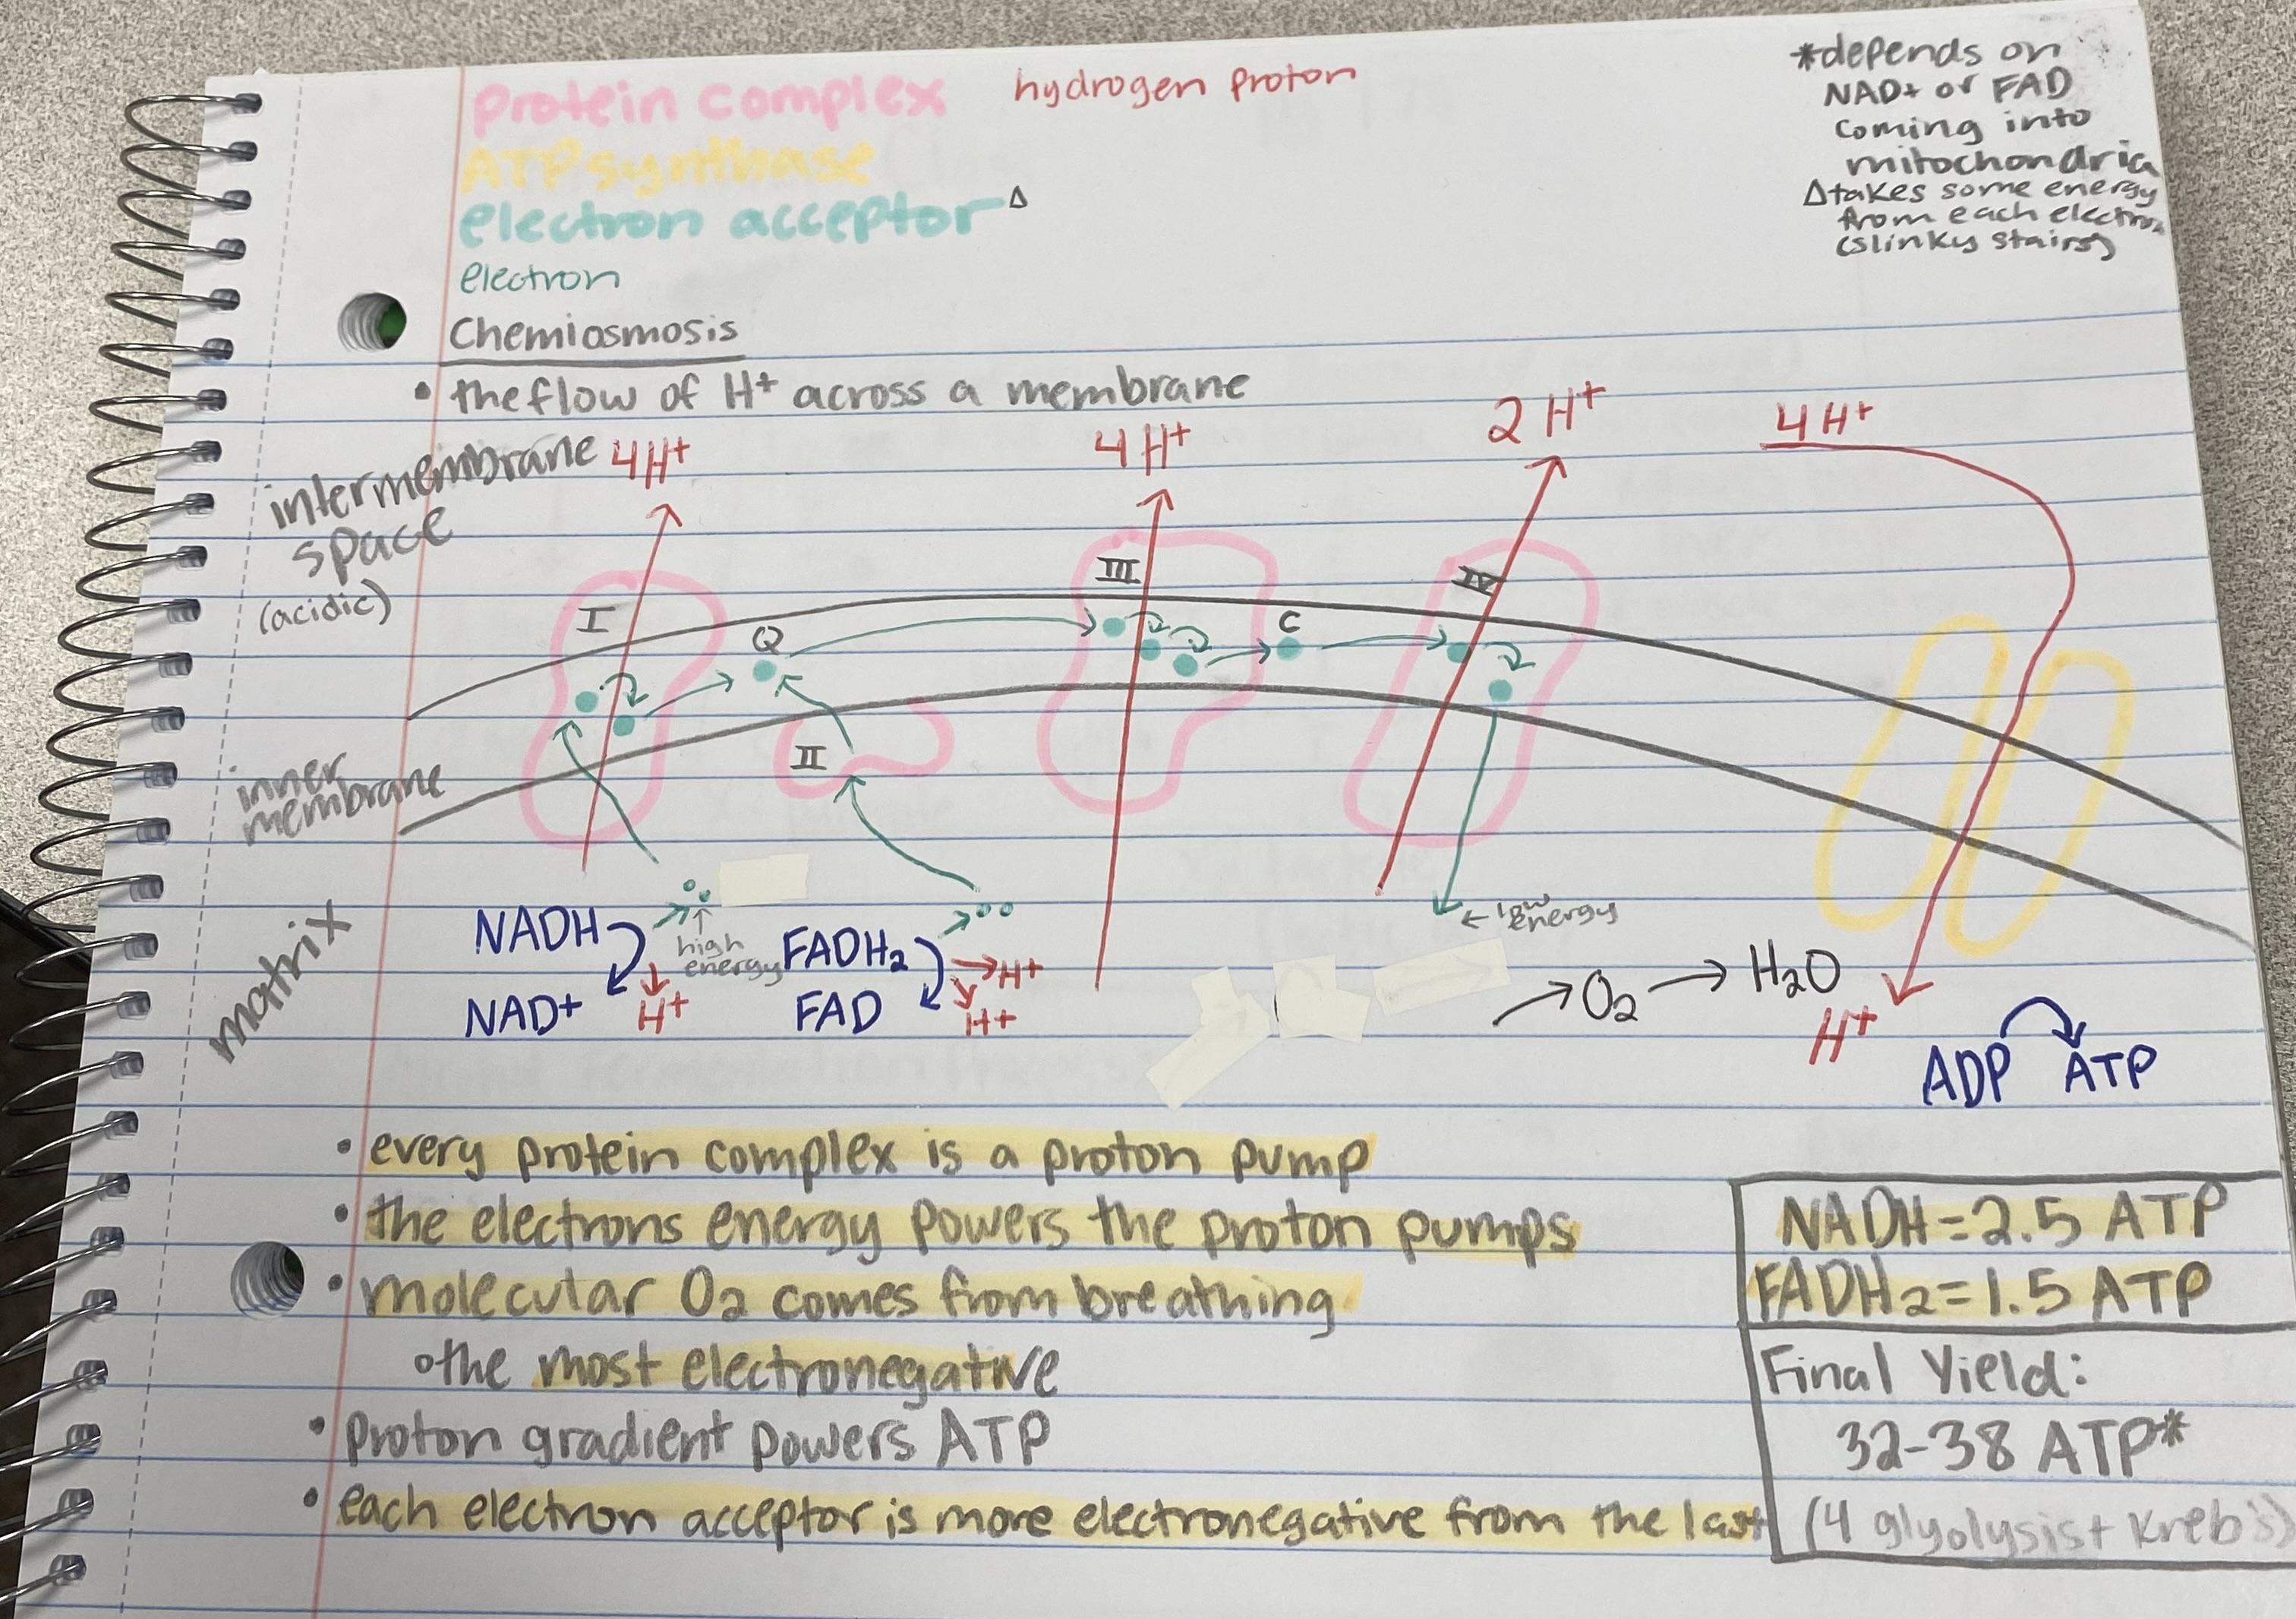 protein complex
hydrogen proton
ATP synthase
electron acceptor Δ
electron
*depends on
NAD+ or FAD
coming into
mitochondria
Δtakes some energy
from each electron
(slinky stairs)
Chemiosmosis
• the flow of H+ across a membrane
intermembrane
space
(acidic)
4H+
4H+
2H+
4H+
I
Q
II
III
C
IV
inner
membrane
matrix
NADH
NAD+
H+
high
energy
FADH2
FAD
H+
H+
← low
energy
O2
H2O
H+
ADP
ATP
• every protein complex is a proton pump
• the electrons energy powers the proton pumps
• molecular O2 comes from breathing
◦ the most electronegative
• Proton gradient powers ATP
• each electron acceptor is more electronegative from the last
NADH=2.5 ATP
FADH2=1.5 ATP
Final Yield:
32-38 ATP*
(4 glyolysis+ Kreb's)